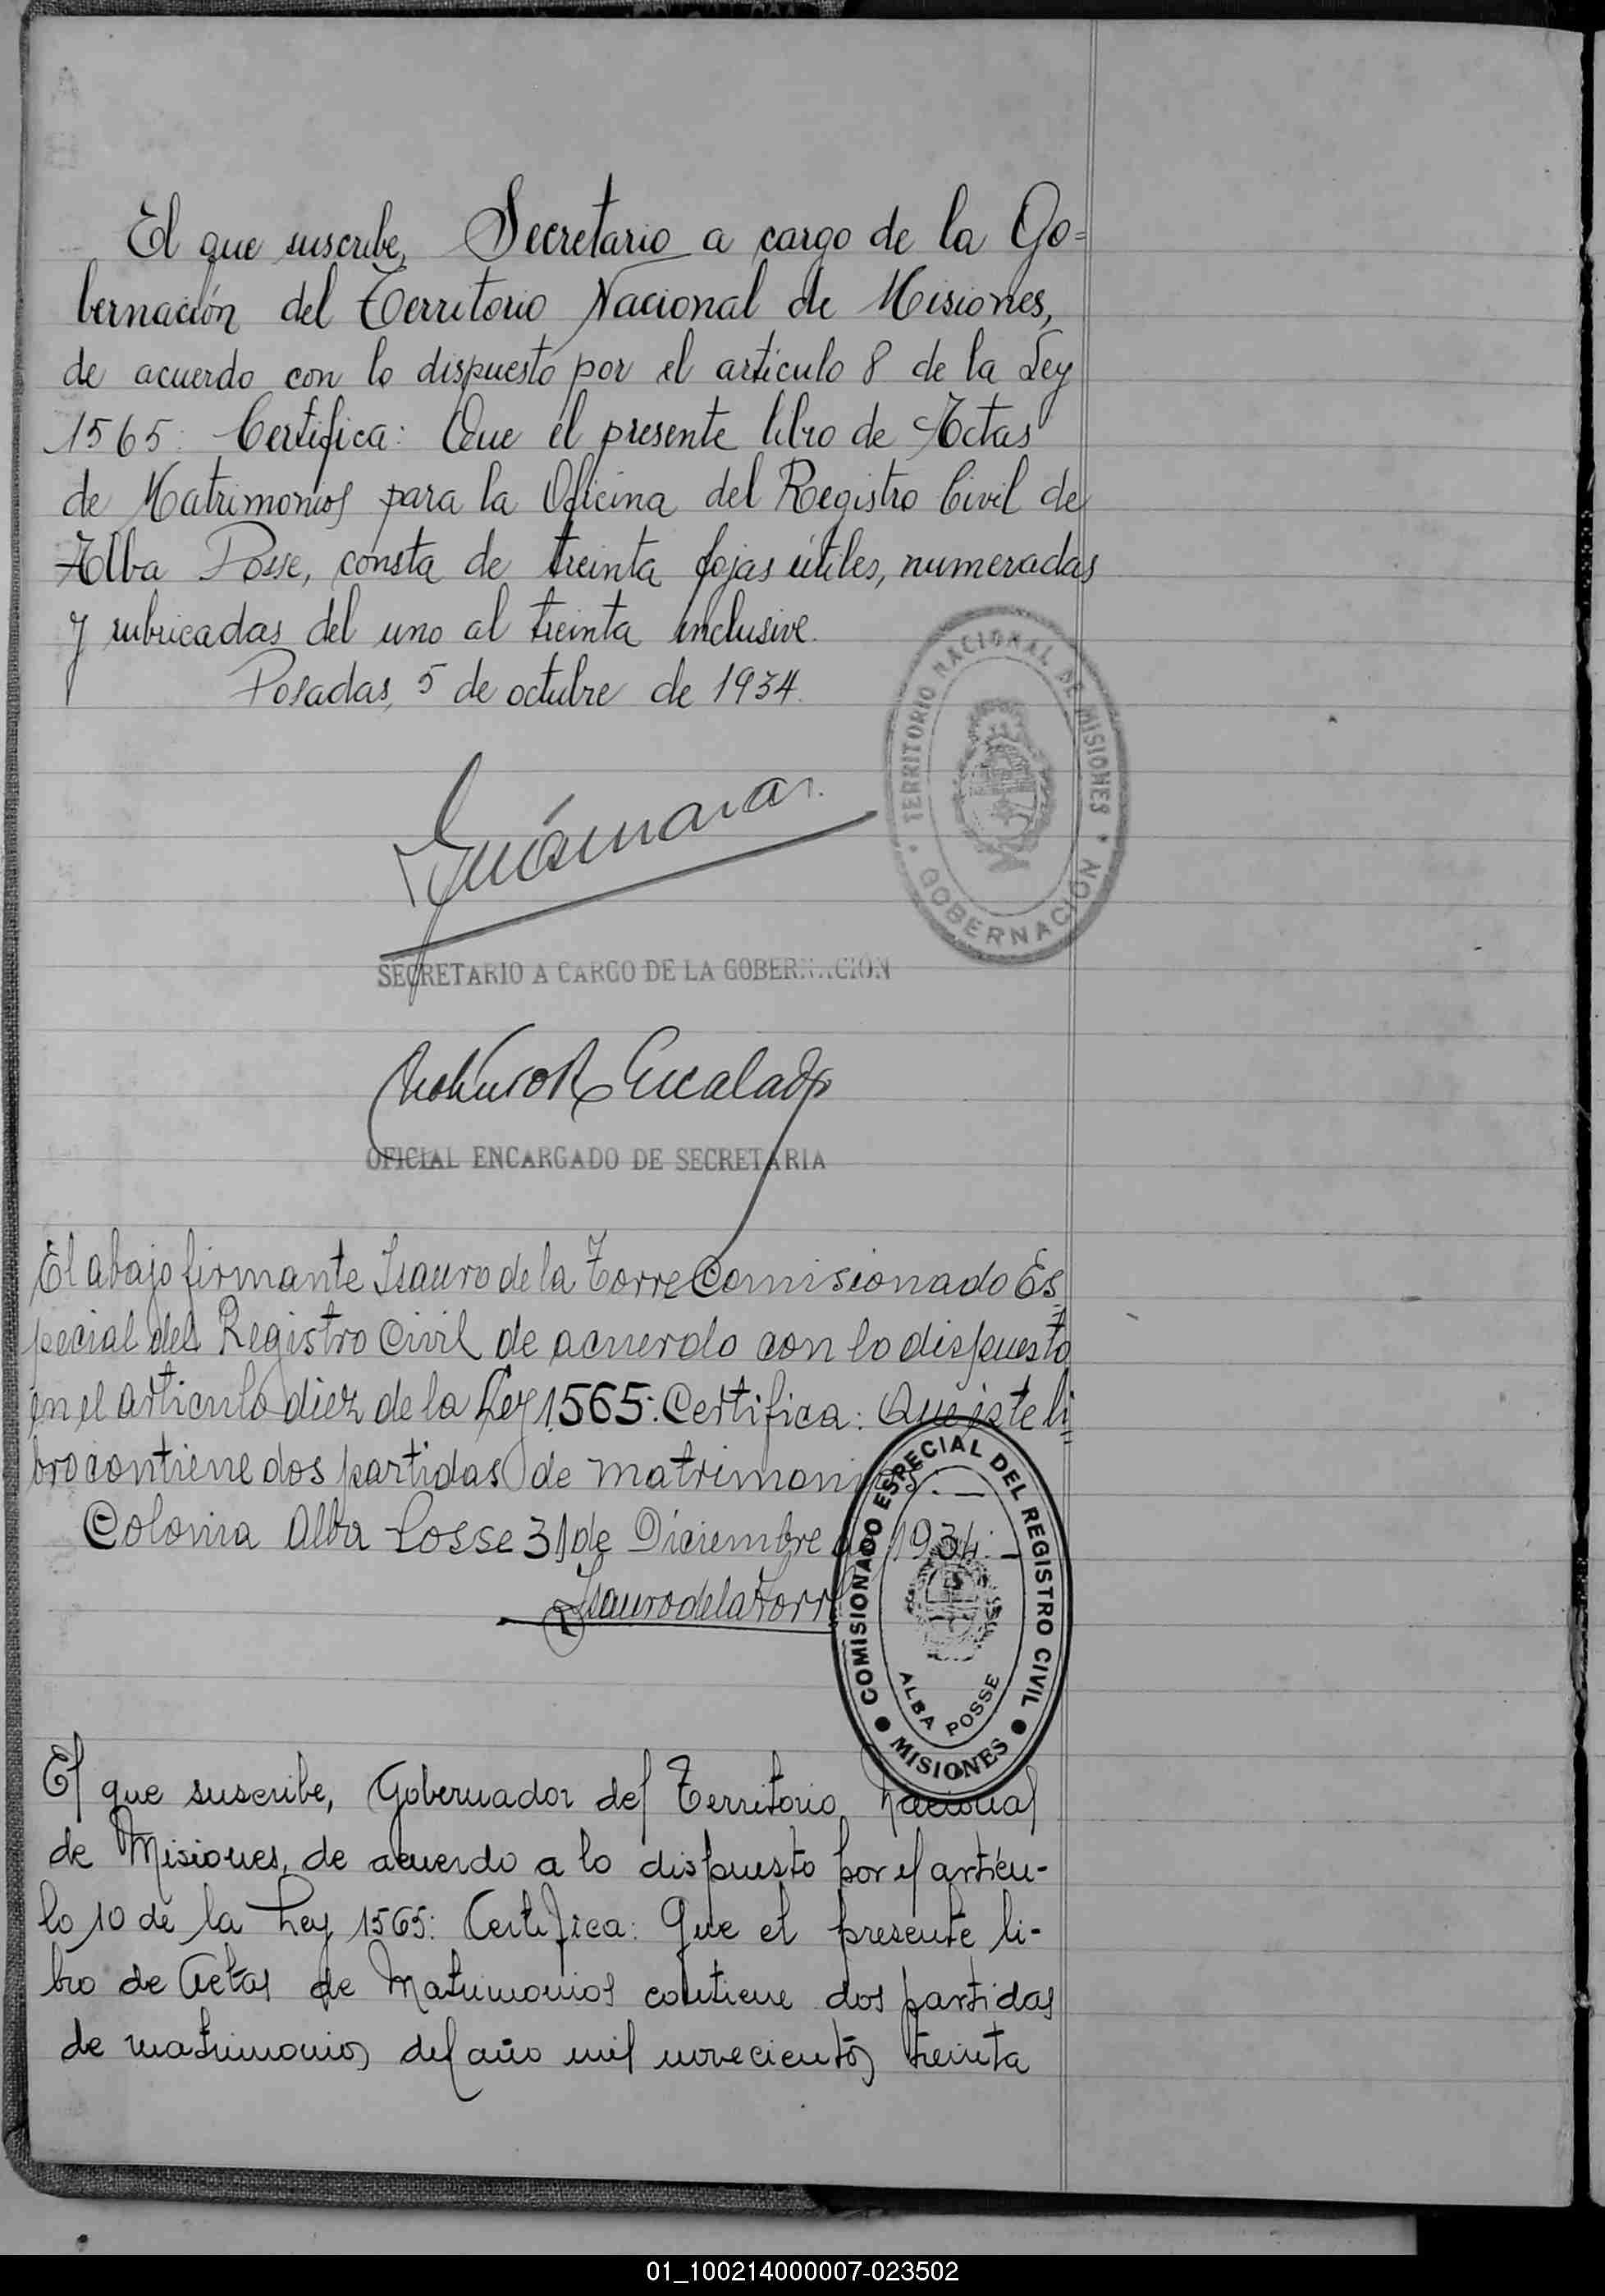 El que suscribe, Secretario a cargo de la Go=
bernación del Territorio Nacional de Misiones,
de acuerdo con lo dispuesto por el artículo 8 de la Ley
1565: Certifica: Que el presente libro de Actas
de Matrimonios para la Oficina del Registro Civil de
Alba Posse, consta de treinta fojas útiles, numeradas
y rubricadas del uno al treinta inclusive.
Posadas, 5 de octubre de 1934.
TERRITORIO NACIONAL DE MISIONES
GOBERNACIÓN
SECRETARIO A CARGO DE LA GOBERNACION
Escalada
OFICIAL ENCARGADO DE SECRETARIA
El abajo firmante Isauro de la Torre Comisionado Es=
pecial del Registro Civil de acuerdo con lo dispuesto
en el articulo diez de la Ley 1565: Certifica: Que este li=
bro contiene dos partidas de matrimonios.—
Colonia Alba Posse 31 de Diciembre de 1934.—
Isauro de la Torre
COMISIONADO ESPECIAL DEL REGISTRO CIVIL
ALBA POSSE
MISIONES
El que suscribe, Gobernador del Territorio Nacional
de Misiones, de acuerdo a lo dispuesto por el artícu-
lo 10 de la Ley 1565: Certifica: Que el presente li-
bro de Actas de Matrimonios contiene dos partidas
de matrimonios del año mil novecientos treinta
01_100214000007-023502